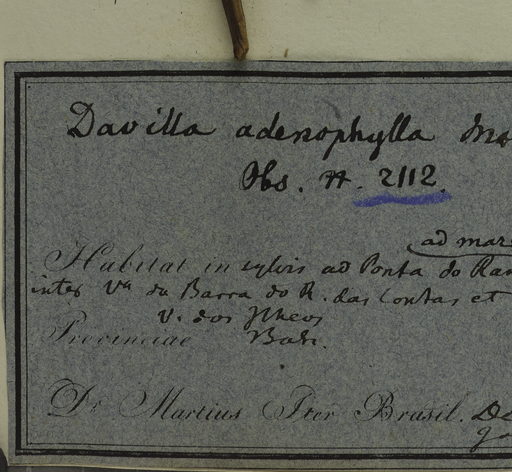 Davilla adenophylla
Obs. #. 2112.
ad mar
Habitat in sylvis ad Ponta do Ram
inter Va. da Barra do R. das Contas et
V. dos Ilheos
Provinciae Bah.
Dr. Martius Iter Brasil. De